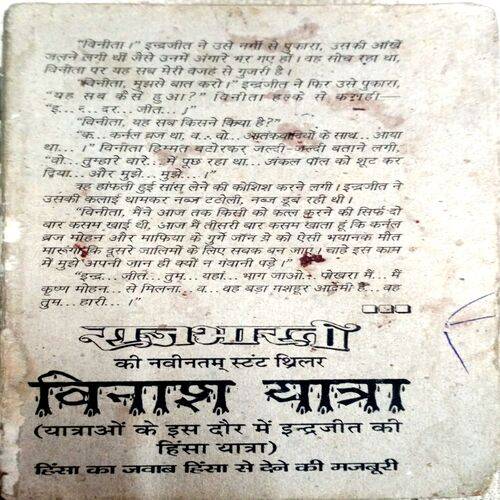 "विनीता।" इन्द्रजीत ने उसे नर्मी से पुकारा, उसकी आंखें
जलने लगी थीं जैसे उनमें अंगारे भर गए हों। वह सोच रहा था,
विनीता पर यह सब मेरी वजह से गुजरी है।
"विनीता, मुझसे बात करो।" इन्द्रजीत ने फिर उसे पुकारा,
"यह सब कैसे हुआ?" विनीता हल्के से
"इ... द... दर... जीत...।"
"विनीता, यह सब किसने किया है?"
"क... कर्नल ब्रज था, व... वो... आतंकवादियों के साथ... आया
था...।" विनीता हिम्मत बटोरकर जल्दी-जल्दी बताने लगी,
"वो... तुम्हारे बारे... में पूछ रहा था... अंकल पॉल को शूट कर
दिया... और मुझे... मुझे...।"
वह हांफती हुई सांस लेने की कोशिश करने लगी। इन्द्रजीत ने
उसकी कलाई थामकर नब्ज टटोली, नब्ज डूब रही थी।
"विनीता, मैंने आज तक किसी को कत्ल करने की सिर्फ दो
बार कसम खाई थी, आज मैं तीसरी बार कसम खाता हूं कि कर्नल
ब्रज मोहन और माफिया के गुर्गे जॉन डे को ऐसी भयानक मौत
मारूंगा कि दूसरे जालिमों के लिए सबक बन जाए। चाहे इस काम
में मुझे अपनी जान ही क्यों न गंवानी पड़े।"
"इन्द्र... जीत... तुम... यहां... भाग जाओ... पोखरा में... मैं
कृष्ण मोहन... से मिलना... व... वह बड़ा मशहूर आदमी है... वह
तुम... हारी...।"
राजभारती
की नवीनतम् स्टंट थ्रिलर
विनाश यात्रा
(यात्राओं के इस दौर में इन्द्रजीत की
हिंसा यात्रा)
हिंसा का जवाब हिंसा से देने की मजबूरी